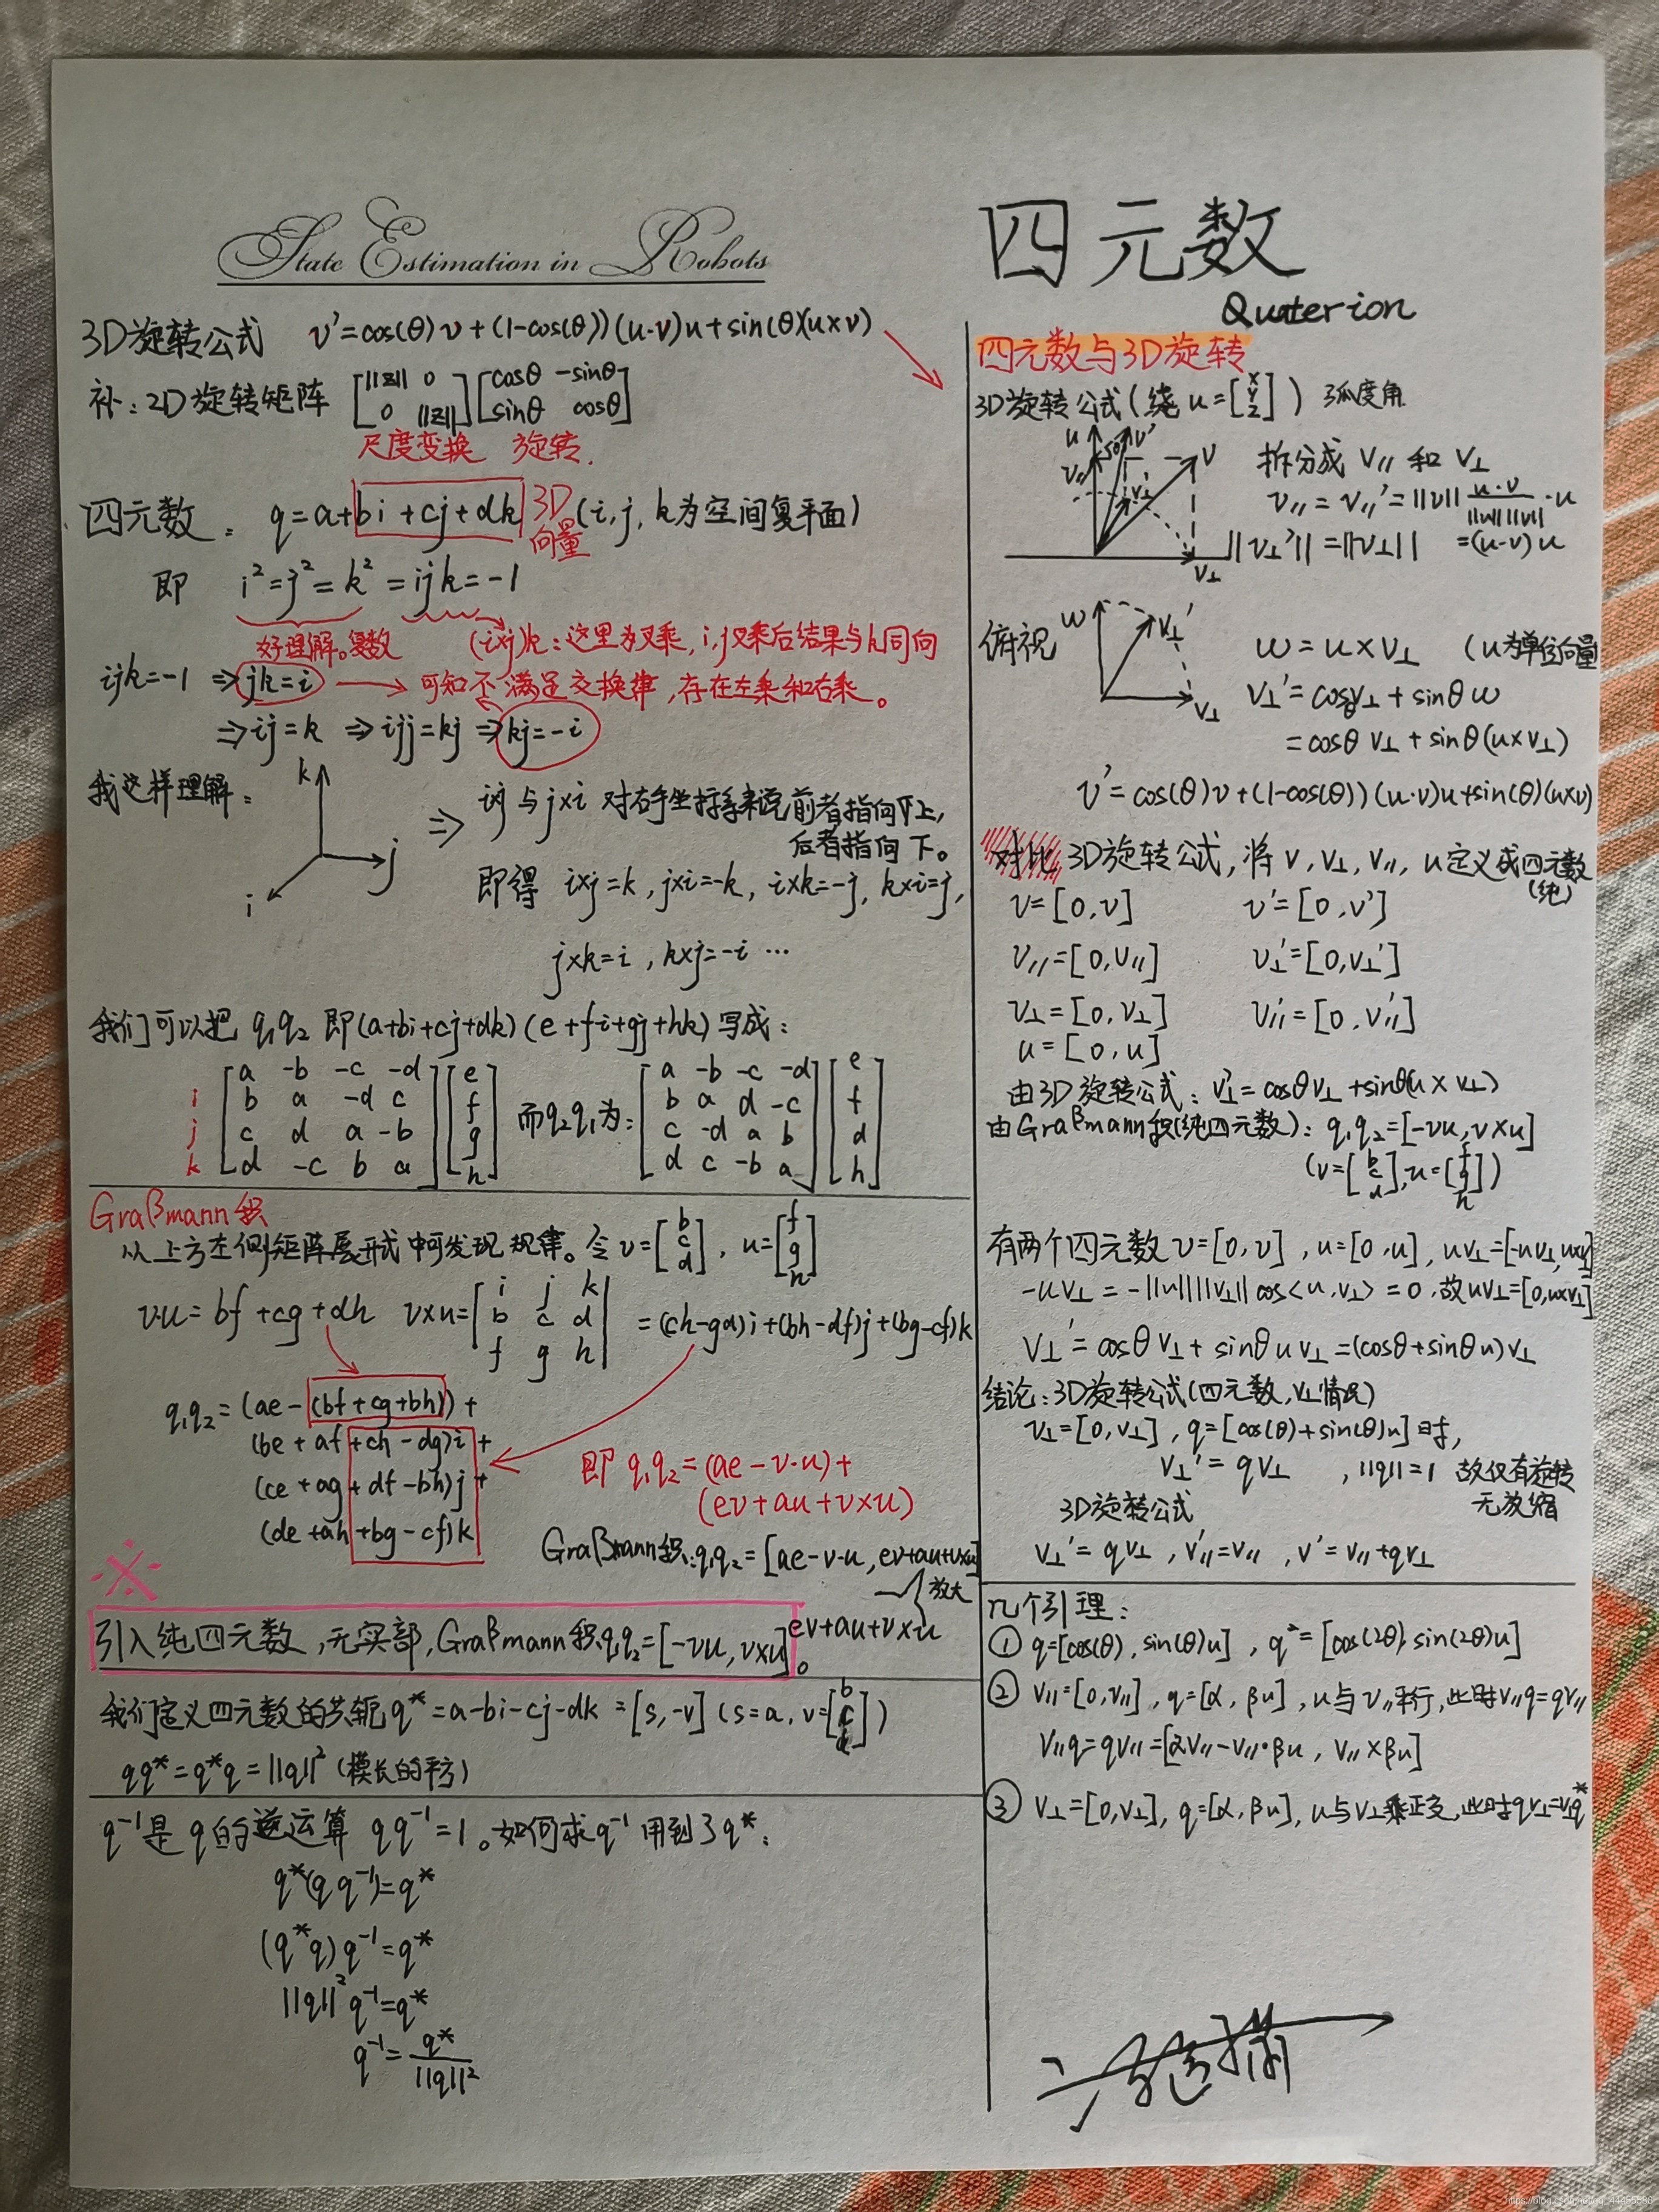 State Estimation in Robots
四元数
Quaterion
3D旋转公式 v'=cos(θ)v+(1-cos(θ))(u·v)u+sin(θ)(u×v)
补：2D旋转矩阵 [||z|| 0 / 0 ||z||][cosθ -sinθ / sinθ cosθ]
尺度变换 旋转.
四元数： q=a+bi+cj+dk 3D向量 (i,j,k为空间复平面)
即 i²=j²=k²=ijk=-1
好理解。复数 (i×j)k：这里为叉乘，i,j叉乘后结果与k同向
ijk=-1 ⇒ jk=i → 可知不满足交换律，存在左乘和右乘。
⇒ij=k ⇒ijj=kj ⇒kj=-i
我这样理解：
k
j
i
⇒ i×j 与 j×i 对右手坐标系来说前者指向上，
后者指向下。
即得 i×j=k, j×i=-k, i×k=-j, k×i=j,
j×k=i, k×j=-i …
我们可以把 q₁q₂ 即(a+bi+cj+dk)(e+fi+gj+hk) 写成：
a -b -c -d e a -b -c -d e
i b a -d c f 而q₂q₁为： b a d -c f
j c d a -b g c -d a b d
k d -c b a h d c -b a h
Graβmann积
从上方左侧矩阵展开式中可发现规律。令 v=[b c d], u=[f g h]
vu=bf+cg+dh v×u=|i j k / b c d / f g h| =(ch-gd)i+(bh-df)j+(bg-cf)k
q₁q₂=(ae-(bf+cg+bh))+
(be+af+ch-dg)i+
(ce+ag+df-bh)j+
(de+ah+bg-cf)k
即 q₁q₂=(ae-v·u)+
(ev+au+v×u)
Graβmann积:q₁q₂=[ae-v·u, ev+au+v×u]
放大
ev+au+v×u
引入纯四元数，无实部，Graβmann积q₁q₂=[-vu, v×u]。
我们定义四元数的共轭q*=a-bi-cj-dk=[s,-v] (s=a, v=[b c d])
qq*=q*q=||q||² (模长的平方)
q⁻¹是q的逆运算 qq⁻¹=1。如何求q⁻¹用到了q*：
q*(qq⁻¹)=q*
(q*q)q⁻¹=q*
||q||²q⁻¹=q*
q⁻¹=q*/||q||²
四元数与3D旋转
3D旋转公式(绕u=[x y z]) 弧度角
u v' v v// v⊥
拆分成 v// 和 v⊥
v//=v//'=||v|| u·v/||u||||v|| ·u
||v⊥'||=||v⊥|| =(u·v)u
俯视 w v⊥' v⊥
w=u×v⊥ (u为单位向量
v⊥'=cosθv⊥+sinθw
=cosθv⊥+sinθ(u×v⊥)
v'=cos(θ)v+(1-cos(θ))(u·v)u+sin(θ)(u×v)
对比 3D旋转公式，将 v, v⊥, v//, u 定义成四元数
(纯)
v=[0,v] v'=[0,v']
v//=[0,v//] v⊥'=[0,v⊥']
v⊥=[0,v⊥] v//'=[0,v//']
u=[0,u]
由3D旋转公式：v⊥'=cosθv⊥+sinθ(u×v⊥)
由Graβmann积(纯四元数)：q₁q₂=[-vu, v×u]
(v=[b c d], u=[f g h])
有两个四元数 v=[0,v], u=[0,u], uv⊥=[-uv⊥, u×v⊥]
-uv⊥=-||u||||v⊥||cos<u,v⊥>=0.故uv⊥=[0,u×v⊥]
v⊥'=cosθv⊥+sinθuv⊥=(cosθ+sinθu)v⊥
结论：3D旋转公式(四元数,v⊥情况)
v⊥=[0,v⊥], q=[cos(θ)+sin(θ)u]时,
v⊥'=qv⊥ ,||q||=1 故仅有旋转
无放缩
3D旋转公式
v⊥'=qv⊥, v//'=v//, v'=v//+qv⊥
几个引理：
① q=[cos(θ), sin(θ)u], q²=[cos(2θ), sin(2θ)u]
② v//=[0,v//], q=[α, βu], u与v//平行，此时v//q=qv//
v//q=qv//=[αv//-v//·βu, v//×βu]
③ v⊥=[0,v⊥], q=[α, βu], u与v⊥乘正交，此时qv⊥=v⊥q*